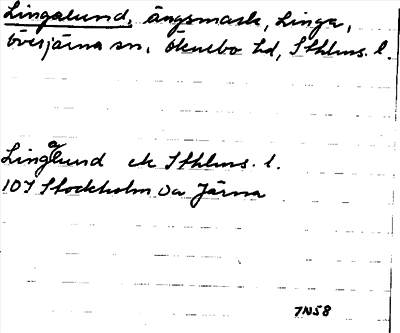 Lingalund, ängsmark, Linga,
Överjärna sn, Öknebo hd, Sthlms. l.
Lingalund ek Sthlms. l.
10J Stockholm Sa Järna
7N58